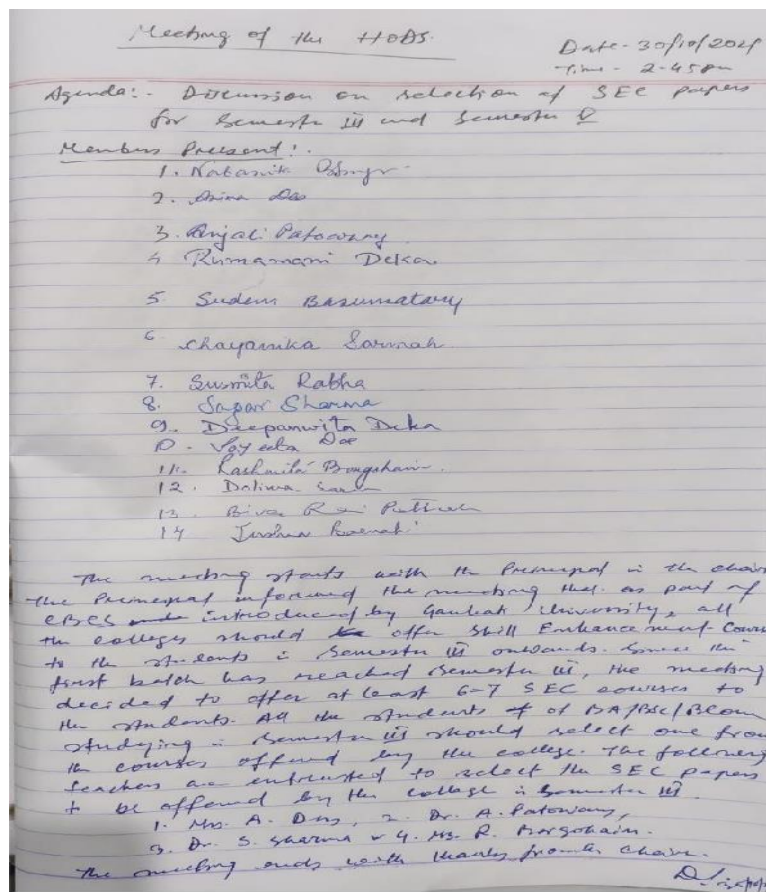 Meeting of the HODS.
Date - 30/10/202
Time - 2-45pm
Agenda:- Discussion on selection of SEC papers
for Semester III and Semester V
Members Present:-
1.
2. Das
3. Anjali Patowary
4 Rumamani Deka
5. Sudem Basumatary
6 Chayanika Sarmah
7. Susmita Rabha
8. Sagar Sharma
9. Deepanwita Deka
0. Das
11.
12.
13
14
The meeting starts with the Principal in the chair
The Principal informed the meeting that as part of
CBCS introduced by Gauhati University, all
the colleges should offer Skill Enhancement Course
to the students in Semester III onwards. Since the
first batch has reached Semester III, the meeting
decided to offer at least 6-7 SEC courses to
the students. All the students of BA/BSc/BCom
studying in Semester III should select one from
the courses offered by the college. The following
teachers are entrusted to select the SEC papers
to be offered by the college in Semester III.
1. Mrs. A. Das, 2. Dr. A. Patowary,
3. Dr. S. Sharma & 4. Ms. R. Borgohain.
The meeting ends with thanks from the chair.